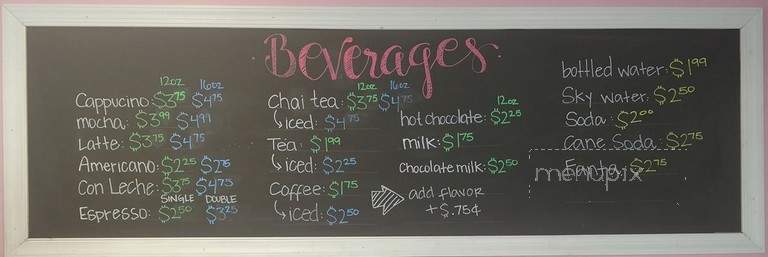 Beverages
12oz 16oz
Cappucino: $3.75 $4.75
mocha: $3.99 $4.99
Latte: $3.75 $4.75
Americano: $2.25 $2.75
Con Leche: $3.75 $4.75
SINGLE DOUBLE
Espresso: $2.50 $3.25
12oz 16oz
Chai tea: $3.75 $4.75
iced: $4.75
Tea: $1.99
iced: $2.25
Coffee: $1.75
iced: $2.50
12oz
hot chocolate: $2.25
milk: $1.75
chocolate milk: $2.50
add flavor
+$.75¢
bottled water: $1.99
Sky water: $2.50
Soda: $2.00
Cane Soda: $2.75
Fanta: $2.75
menupix